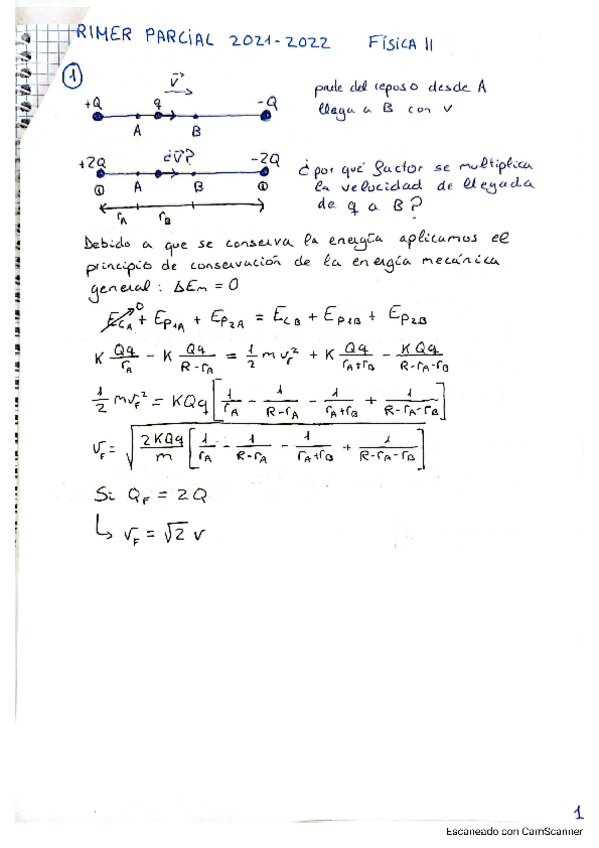 RIMER PARCIAL 2021-2022 FÍSICA II
1
+Q q v⃗ -Q
A B
parte del reposo desde A
llega a B con v
+2Q ¿v⃗? -2Q
① A B ②
rA rB
¿por qué factor se multiplica
la velocidad de llegada
de q a B?
Debido a que se conserva la energía aplicamos el
principio de conservación de la energía mecánica
general: ΔEm = 0
EcA⁰ + Ep1A + Ep2A = EcB + Ep1B + Ep2B
K Qq/rA - K Qq/(R-rA) = 1/2 m vF² + K Qq/(rA+rB) - KQq/(R-rA-rB)
1/2 m vF² = KQq [1/rA - 1/(R-rA) - 1/(rA+rB) + 1/(R-rA-rB)]
vF = √(2KQq/m [1/rA - 1/(R-rA) - 1/(rA+rB) + 1/(R-rA-rB)])
Si QF = 2Q
↳ vF = √2 v
1
Escaneado con CamScanner